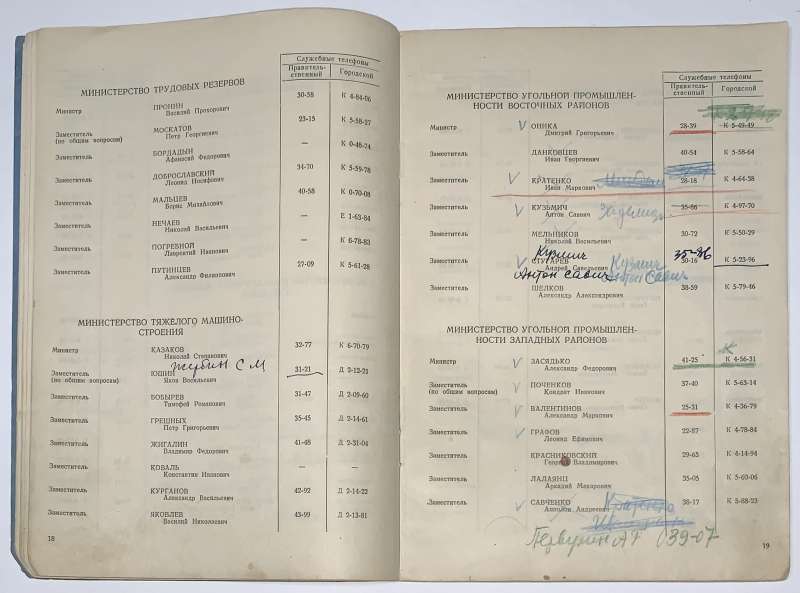 Служебные телефоны
Правитель-
ственный
Городской
МИНИСТЕРСТВО ТРУДОВЫХ РЕЗЕРВОВ
Министр ПРОНИН 50-58 К 4-84-06
Василий Прохорович
Заместитель МОСКАТОВ 23-15 К 5-58-27
(по общим вопросам) Петр Георгиевич
Заместитель БОРДАДЫН — К 0-46-74
Афанасий Федорович
Заместитель ДОБРОСЛАВСКИЙ 34-70 К 5-59-78
Леонид Иосифович
Заместитель МАЛЬЦЕВ 40-58 К 0-70-08
Борис Михайлович
Заместитель НЕЧАЕВ — Е 1-63-84
Николай Васильевич
Заместитель ПОГРЕБНОЙ — К 6-78-83
Лаврентий Иванович
Заместитель ПУТИНЦЕВ 27-09 К 5-61-28
Александр Филиппович
МИНИСТЕРСТВО ТЯЖЕЛОГО МАШИНО-
СТРОЕНИЯ
Министр КАЗАКОВ 32-77 К 6-70-79
Николай Степанович
Жубин С М
Заместитель ЮШИН 31-21 Д 2-12-21
(по общим вопросам) Яков Васильевич
Заместитель БОБЫРЕВ 31-47 Д 2-09-60
Тимофей Романович
Заместитель ГРЕШНЫХ 35-45 Д 2-14-61
Петр Григорьевич
Заместитель ЖИГАЛИН 41-48 Д 2-31-04
Владимир Федорович
Заместитель КОВАЛЬ — —
Константин Иванович
Заместитель КУРГАНОВ 42-92 Д 2-14-22
Александр Васильевич
Заместитель ЯКОВЛЕВ 43-99 Д 2-13-81
Василий Николаевич
18
Служебные телефоны
Правитель-
ственный
Городской
МИНИСТЕРСТВО УГОЛЬНОЙ ПРОМЫШЛЕН-
НОСТИ ВОСТОЧНЫХ РАЙОНОВ
Министр ОНИКА 28-39 К 5-49-49
Дмитрий Григорьевич
Заместитель ДАНКОВЦЕВ 40-54 К 5-58-64
Иван Георгиевич
Заместитель КРАТЕНКО 28-18 К 4-64-58
Иван Маркович
Заместитель КУЗЬМИЧ 35-86 К 4-97-70
Антон Савич
Заместитель МЕЛЬНИКОВ 30-72 К 5-50-29
Николай Васильевич
Кузмич
Заместитель СТУГАРЕВ 30-16 К 5-23-96
Андрей Савельевич Кузмич
Антон Савич Антон Савич
Заместитель ШЕЛКОВ 38-59 К 5-79-46
Александр Александрович
МИНИСТЕРСТВО УГОЛЬНОЙ ПРОМЫШЛЕН-
НОСТИ ЗАПАДНЫХ РАЙОНОВ
К
Министр ЗАСЯДЬКО 41-25 К 4-56-31
Александр Федорович
Заместитель ПОЧЕНКОВ 37-40 К 5-63-14
(по общим вопросам) Кондрат Иванович
Заместитель ВАЛЕНТИНОВ 25-31 К 4-36-79
Александр Маркович
Заместитель ГРАФОВ 22-87 К 4-78-84
Леонид Ефимович
Заместитель КРАСНИКОВСКИЙ 29-63 К 4-14-94
Георгий Владимирович
Заместитель ЛАЛАЯНЦ 35-05 К 5-60-06
Аркадий Макарович
Заместитель САВЧЕНКО 38-17 К 5-88-23
Антолин Андреевич
Первухин АТ 39-07
19